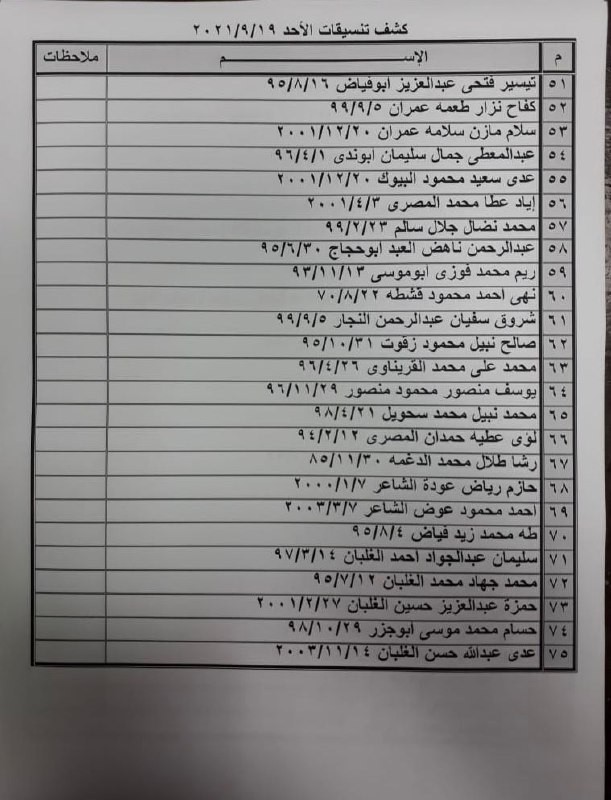 كشف تنسيقات الأحد ٢٠٢١/٩/١٩
م الإســـم ملاحظات
٥١ تيسير فتحى عبدالعزيز ابوفياض ٩٥/٨/١٦
٥٢ كفاح نزار طعمه عمران ٩٩/٩/٥
٥٣ سلام مازن سلامه عمران ٢٠٠١/١٢/٢٠
٥٤ عبدالمعطى جمال سليمان ابوندى ٩٦/٤/١
٥٥ عدى سعيد محمود البيوك ٢٠٠١/١٢/٢٠
٥٦ إياد عطا محمد المصرى ٢٠٠١/٤/٣
٥٧ محمد نضال جلال سالم ٩٩/٢/٢٣
٥٨ عبدالرحمن ناهض العبد ابوحجاج ٩٥/٦/٣٠
٥٩ ريم محمد فوزى ابوموسى ٩٣/١١/١٣
٦٠ نهى احمد محمود قشطه ٧٠/٨/٢٢
٦١ شروق سفيان عبدالرحمن النجار ٩٩/٩/٥
٦٢ صالح نبيل محمود زقوت ٩٥/١٠/٣١
٦٣ محمد على محمد القريناوى ٩٦/٤/٢٦
٦٤ يوسف منصور محمود منصور ٩٦/١١/٢٩
٦٥ محمد نبيل محمد سحويل ٩٨/٤/٢١
٦٦ لؤى عطيه حمدان المصرى ٩٤/٢/١٢
٦٧ رشا طلال محمد الدغمه ٨٥/١١/٣٠
٦٨ حازم رياض عودة الشاعر ٢٠٠٠/١/٧
٦٩ احمد محمود عوض الشاعر ٢٠٠٣/٣/٧
٧٠ طه محمد زيد فياض ٩٥/٨/٤
٧١ سليمان عبدالجواد احمد الغلبان ٩٧/٣/١٤
٧٢ محمد جهاد محمد الغلبان ٩٥/٧/١٢
٧٣ حمزة عبدالعزيز حسين الغلبان ٢٠٠١/٢/٢٧
٧٤ حسام محمد موسى ابوجزر ٩٨/١٠/٢٩
٧٥ عدى عبدالله حسن الغلبان ٢٠٠٣/١١/١٤